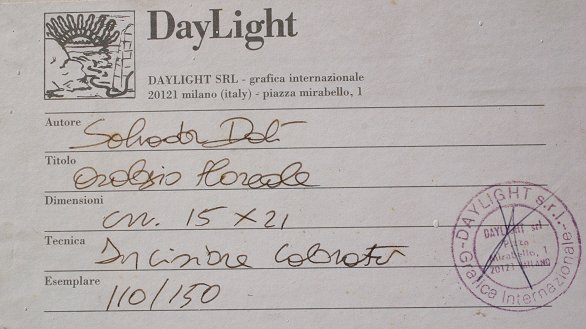 DayLight
DAYLIGHT SRL - grafica internazionale
20121 milano (italy) - piazza mirabello, 1
Autore Salvador Dalì
Titolo Orologio Floreale
Dimensioni cm. 15 x 21
Tecnica Incisione Colorata
Esemplare 110/150
DAYLIGHT s.r.l. - Grafica Internazionale
DAYLIGHT srl
Piazza
Mirabello, 1
20121 MILANO